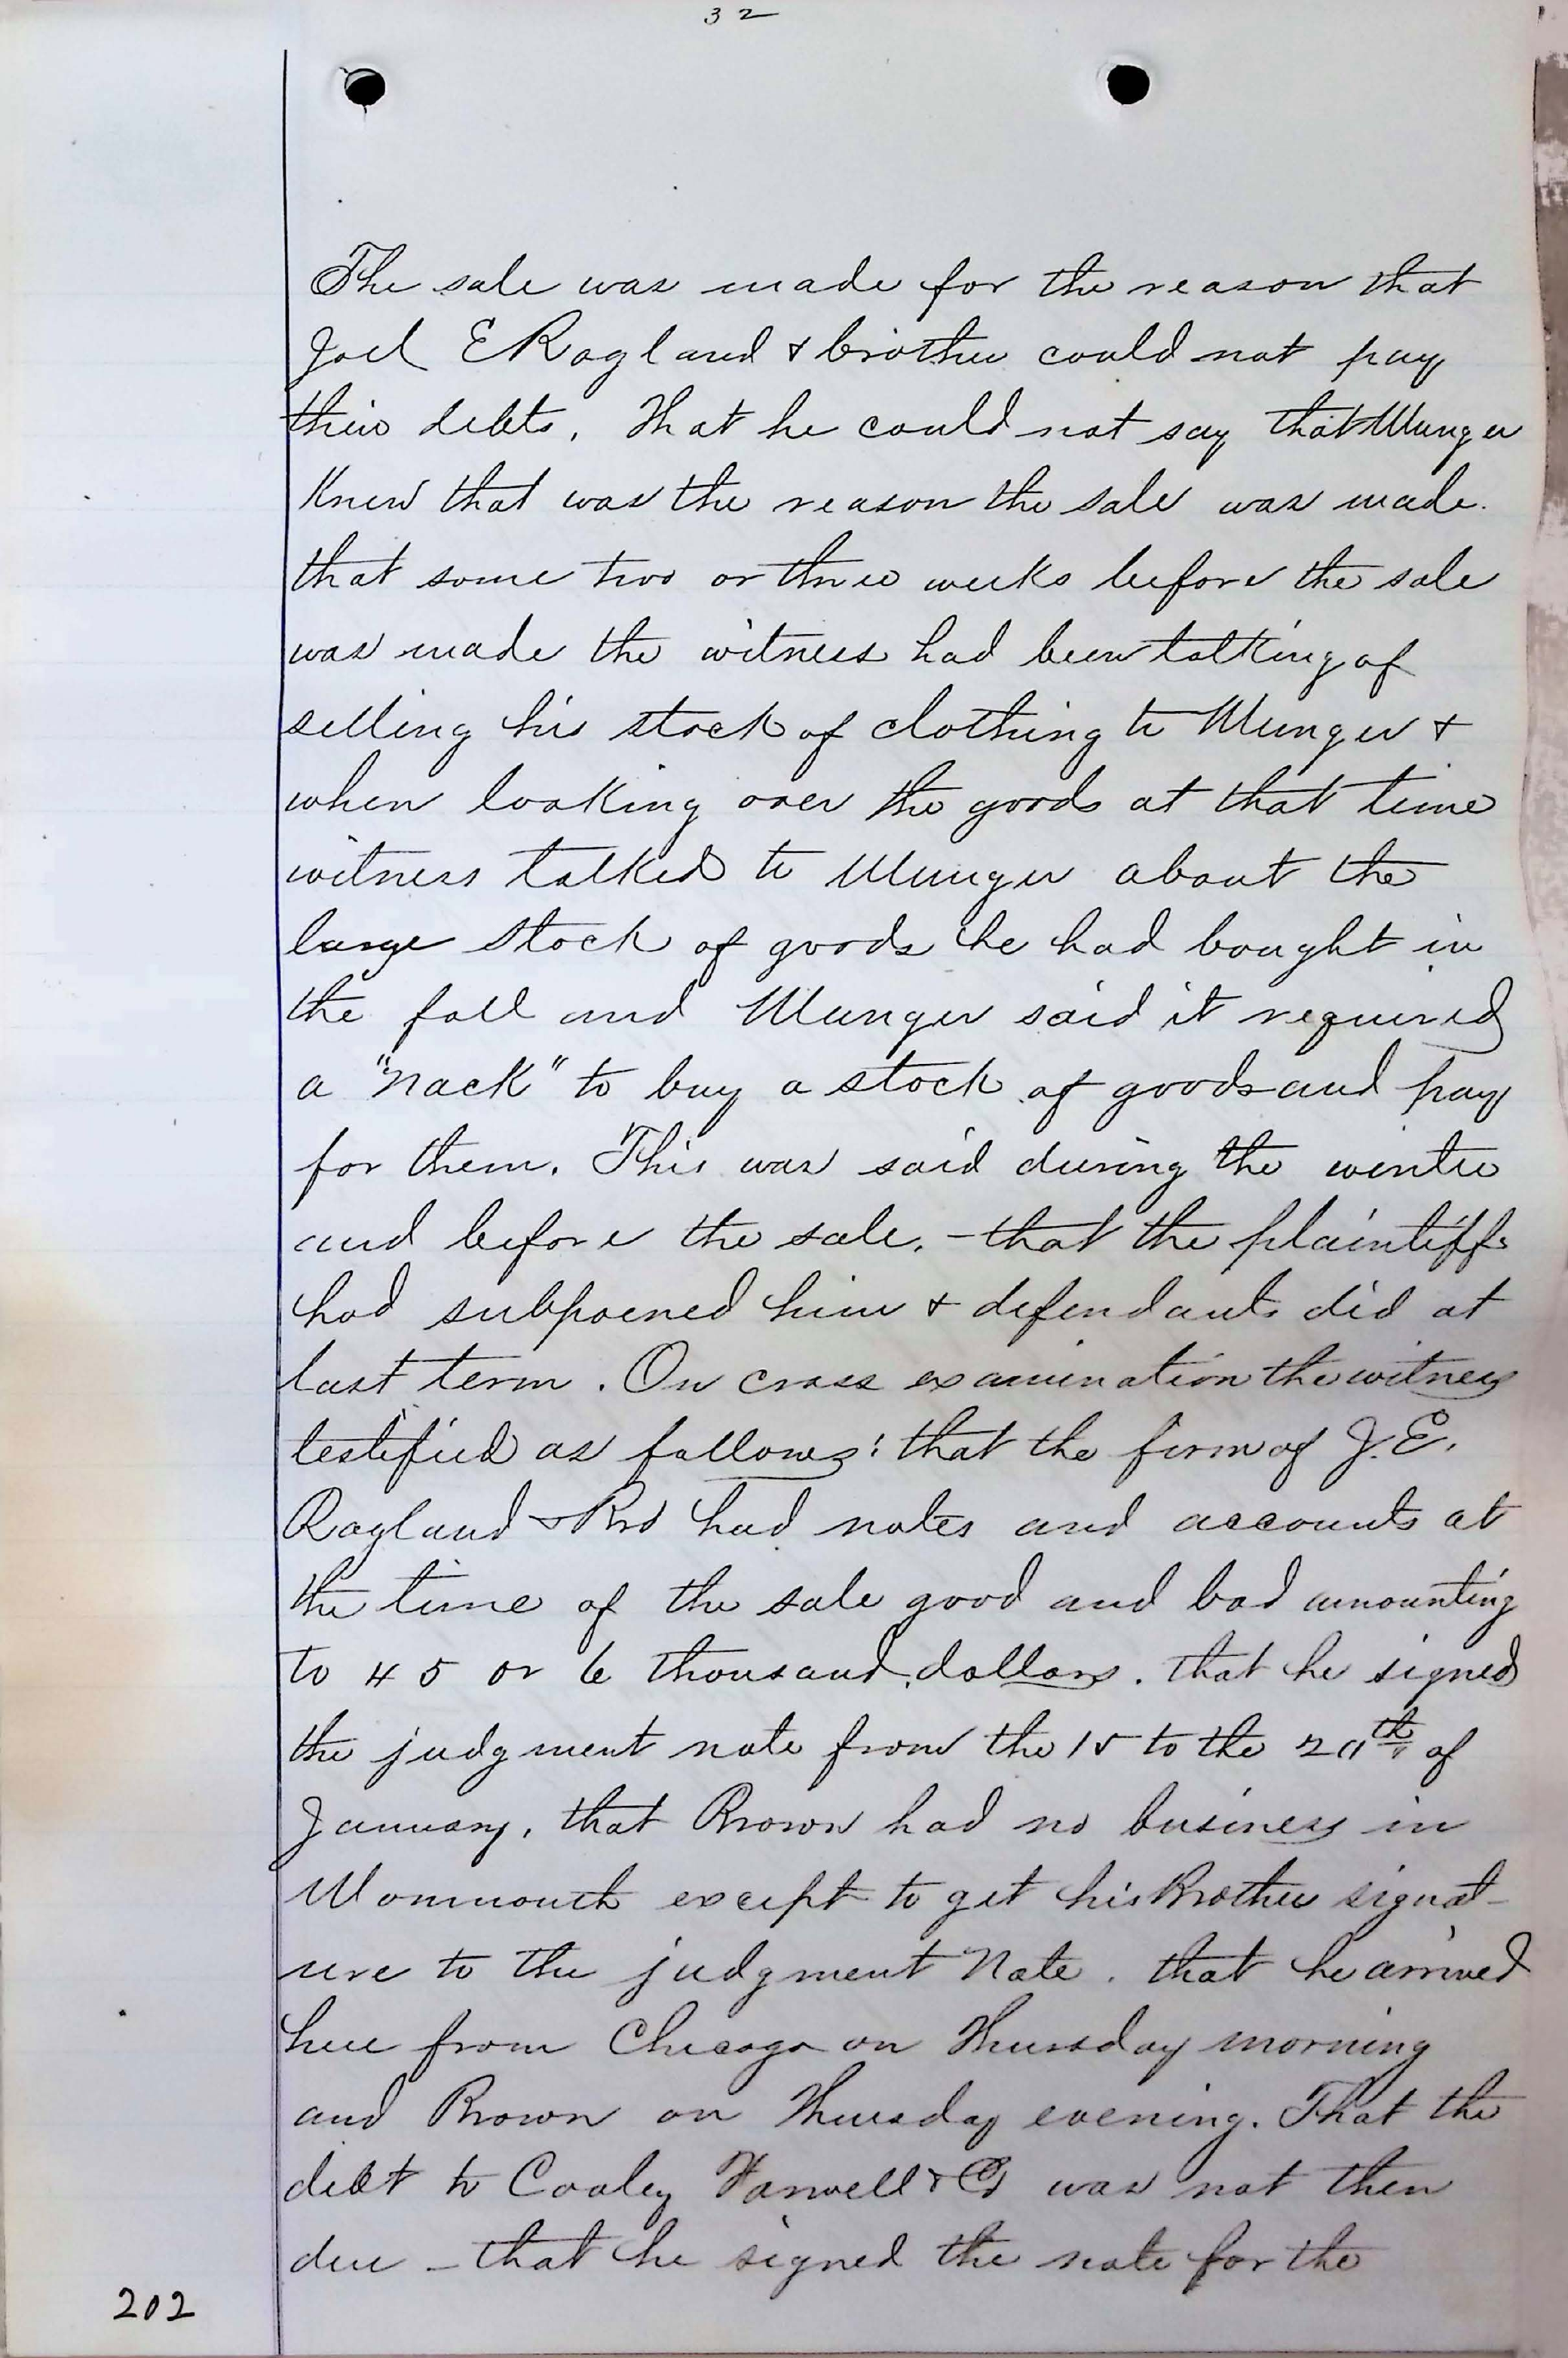 32
The sale was made for the reason that
Joel E Ragland & brother could not pay
their debts, That he could not say that Munger
Knew that was the reason the sale was made.
that some two or three weeks before the sale
was made the witness had been talking of
selling his stock of clothing to Munger &
when looking over the goods at that time
witness talked to Munger about the
large stock of goods he had bought in
the fall and Munger said it required
a "nack" to buy a stock of goods and pay
for them. This was said during the winter
and before the sale. - that the plaintiffs
had subpoened him & defendants did at
last term. On cross examination the witness
testified as follows: that the firm of J. E.
Ragland & Bro had notes and accounts at
the time of the sale good and bad amounting
to 4 5 or 6 thousand dollars. that he signed
the judgment note from the 15 to the 20th of
January, that Brown had no business in
Monmouth except to get his Brother signat-
ure to the judgment Note. that he arrived
here from Chicago on Thursday morning
and Brown on Thursday evening. That the
debt to Cooley Farwell & Co was not then
due - that he signed the note for the
202